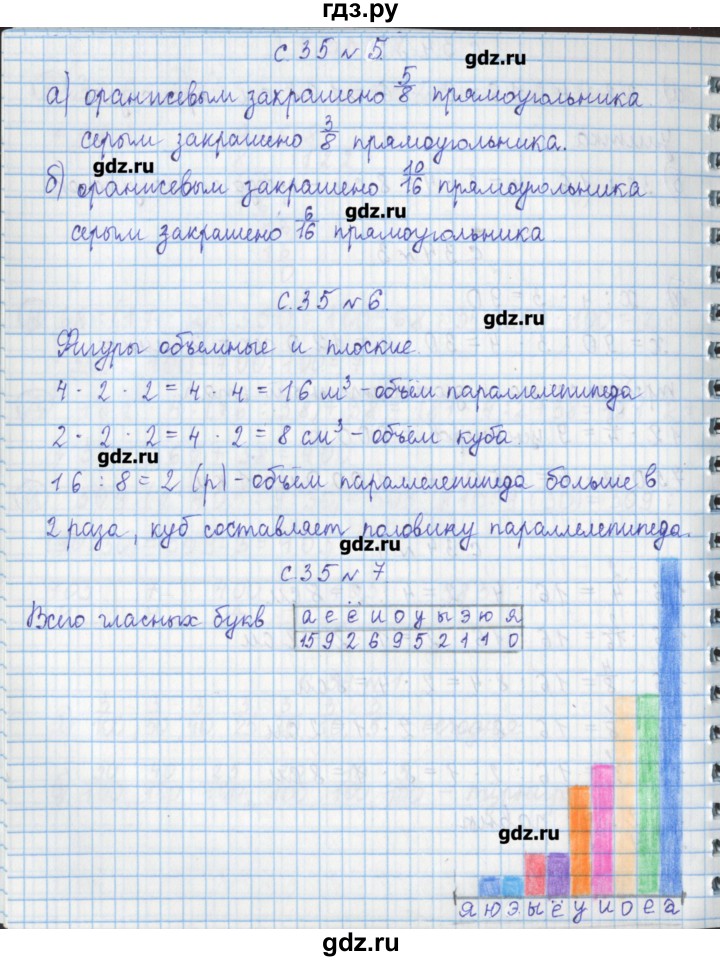 гдз.ру
с.35 № 5.
gdz.ru
а) оранжевым закрашено 5/8 прямоугольника
серым закрашено 3/8 прямоугольника.
gdz.ru
б) оранжевым закрашено 10/16 прямоугольника
gdz.ru
серым закрашено 6/16 прямоугольника
с.35 № 6.
gdz.ru
Фигуры объемные и плоские.
4 · 2 · 2 = 4 · 4 = 16 м³ - объём параллелепипеда
2 · 2 · 2 = 4 · 2 = 8 см³ - объём куба.
gdz.ru
16 : 8 = 2 (р) - объём параллелепипеда больше в
2 раза, куб составляет половину параллелепипеда.
gdz.ru
с.35 № 7
Всего гласных букв а е ё и о у ы э ю я
15 9 2 6 9 5 2 1 1 0
gdz.ru
я ю э ы ё у и о е а
gdz.ru